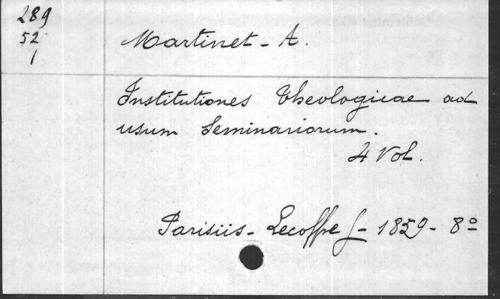 289
52
1
Martinet - A.
Institutiones Theologicae ad
usum Seminariorum.
4 Vol.
Parisiis - Lecoffre - 1859 - 8º